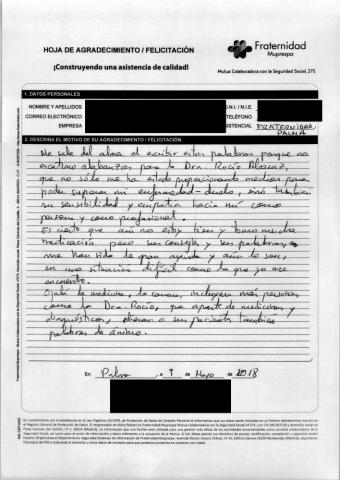 HOJA DE AGRADECIMIENTO / FELICITACIÓN
¡Construyendo una asistencia de calidad!
Fraternidad
Muprespa
Mutua Colaboradora con la Seguridad Social, 275
1. DATOS PERSONALES
NOMBRE Y APELLIDOS
D.N.I. / N.I.E.
CORREO ELECTRÓNICO
TELÉFONO
EMPRESA
ISTENCIAL FRATERNIDAD
PALMA
2. DESCRIBA EL MOTIVO DE SU AGRADECIMIENTO / FELICITACIÓN
Me sale del alma el escribir estas palabras porque no
escatimo alabanzas para la Dra. Rocío
que no sólo me ha estado proporcionando medios para
poder superar mi enfermedad-duelo, sino también
su sensibilidad y empatía hacia mí como
persona y como profesional.
Es cierto que aún no estoy bien y tomo mucha
medicación pero sus consejos y sus palabras
me han sido de gran ayuda y aún lo son,
en una situación difícil como la que yo me
encuentro.
Ojalá la medicina, la carrera, incluyera más personas
como la Dra. Rocío, que aparte de medicinas y
diagnósticos, ofrecen a sus pacientes también
palabras de ánimo.
En Palma, a 9 de Mayo de 2018